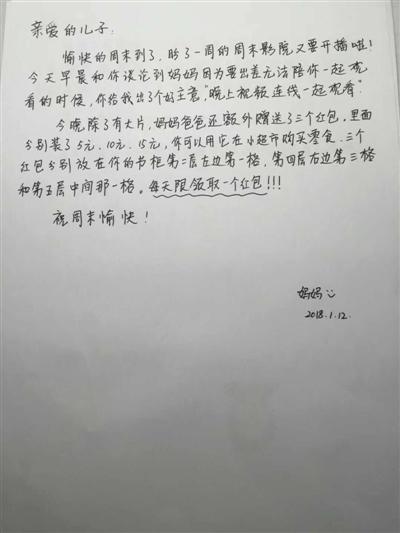 亲爱的儿子：
愉快的周末到了，盼了一周的周末影院又要开播啦！
今天早晨和你谈论到妈妈因为要出差无法陪你一起观
看的时候，你给我出了个好主意，"晚上视频连线一起观看"
今晚除了有大片，妈妈爸爸还额外赠送了三个红包，里面
分别装了5元、10元、15元，你可以用它在小超市购买零食．三个
红包分别放在你的书柜第二层左边第一格，第四层右边第三格
和第五层中间那一格。每天限领取一个红包!!!
祝周末愉快！
妈妈
2018.1.12.